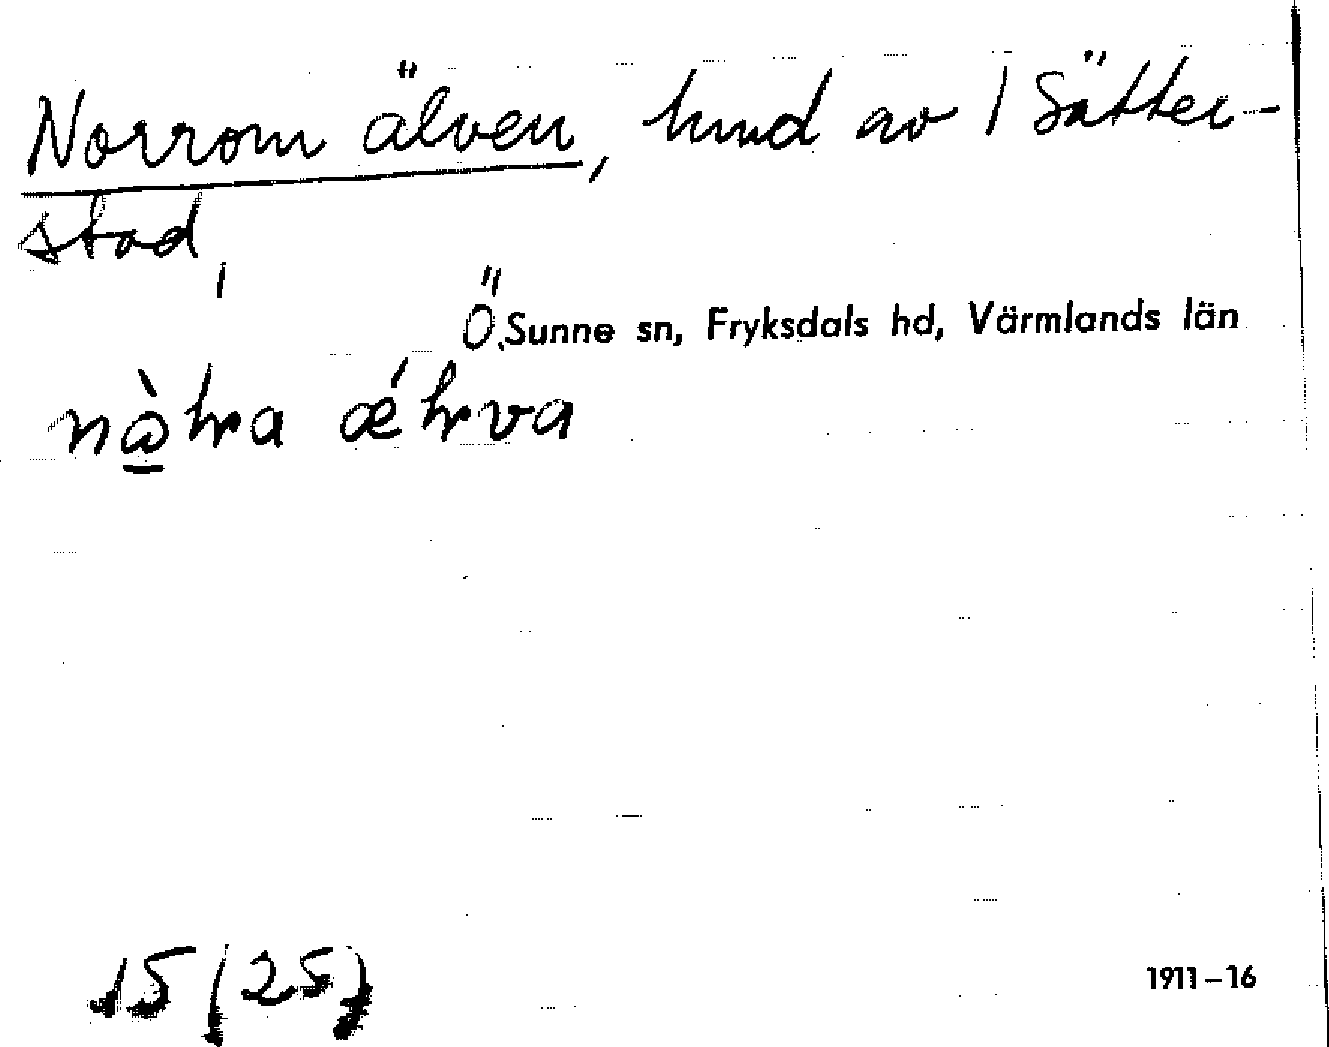 Norrom älven, hmd av 1 Sätter-
stad,
Ö. Sunne sn, Fryksdals hd, Värmlands län
15 (25)
1911–16